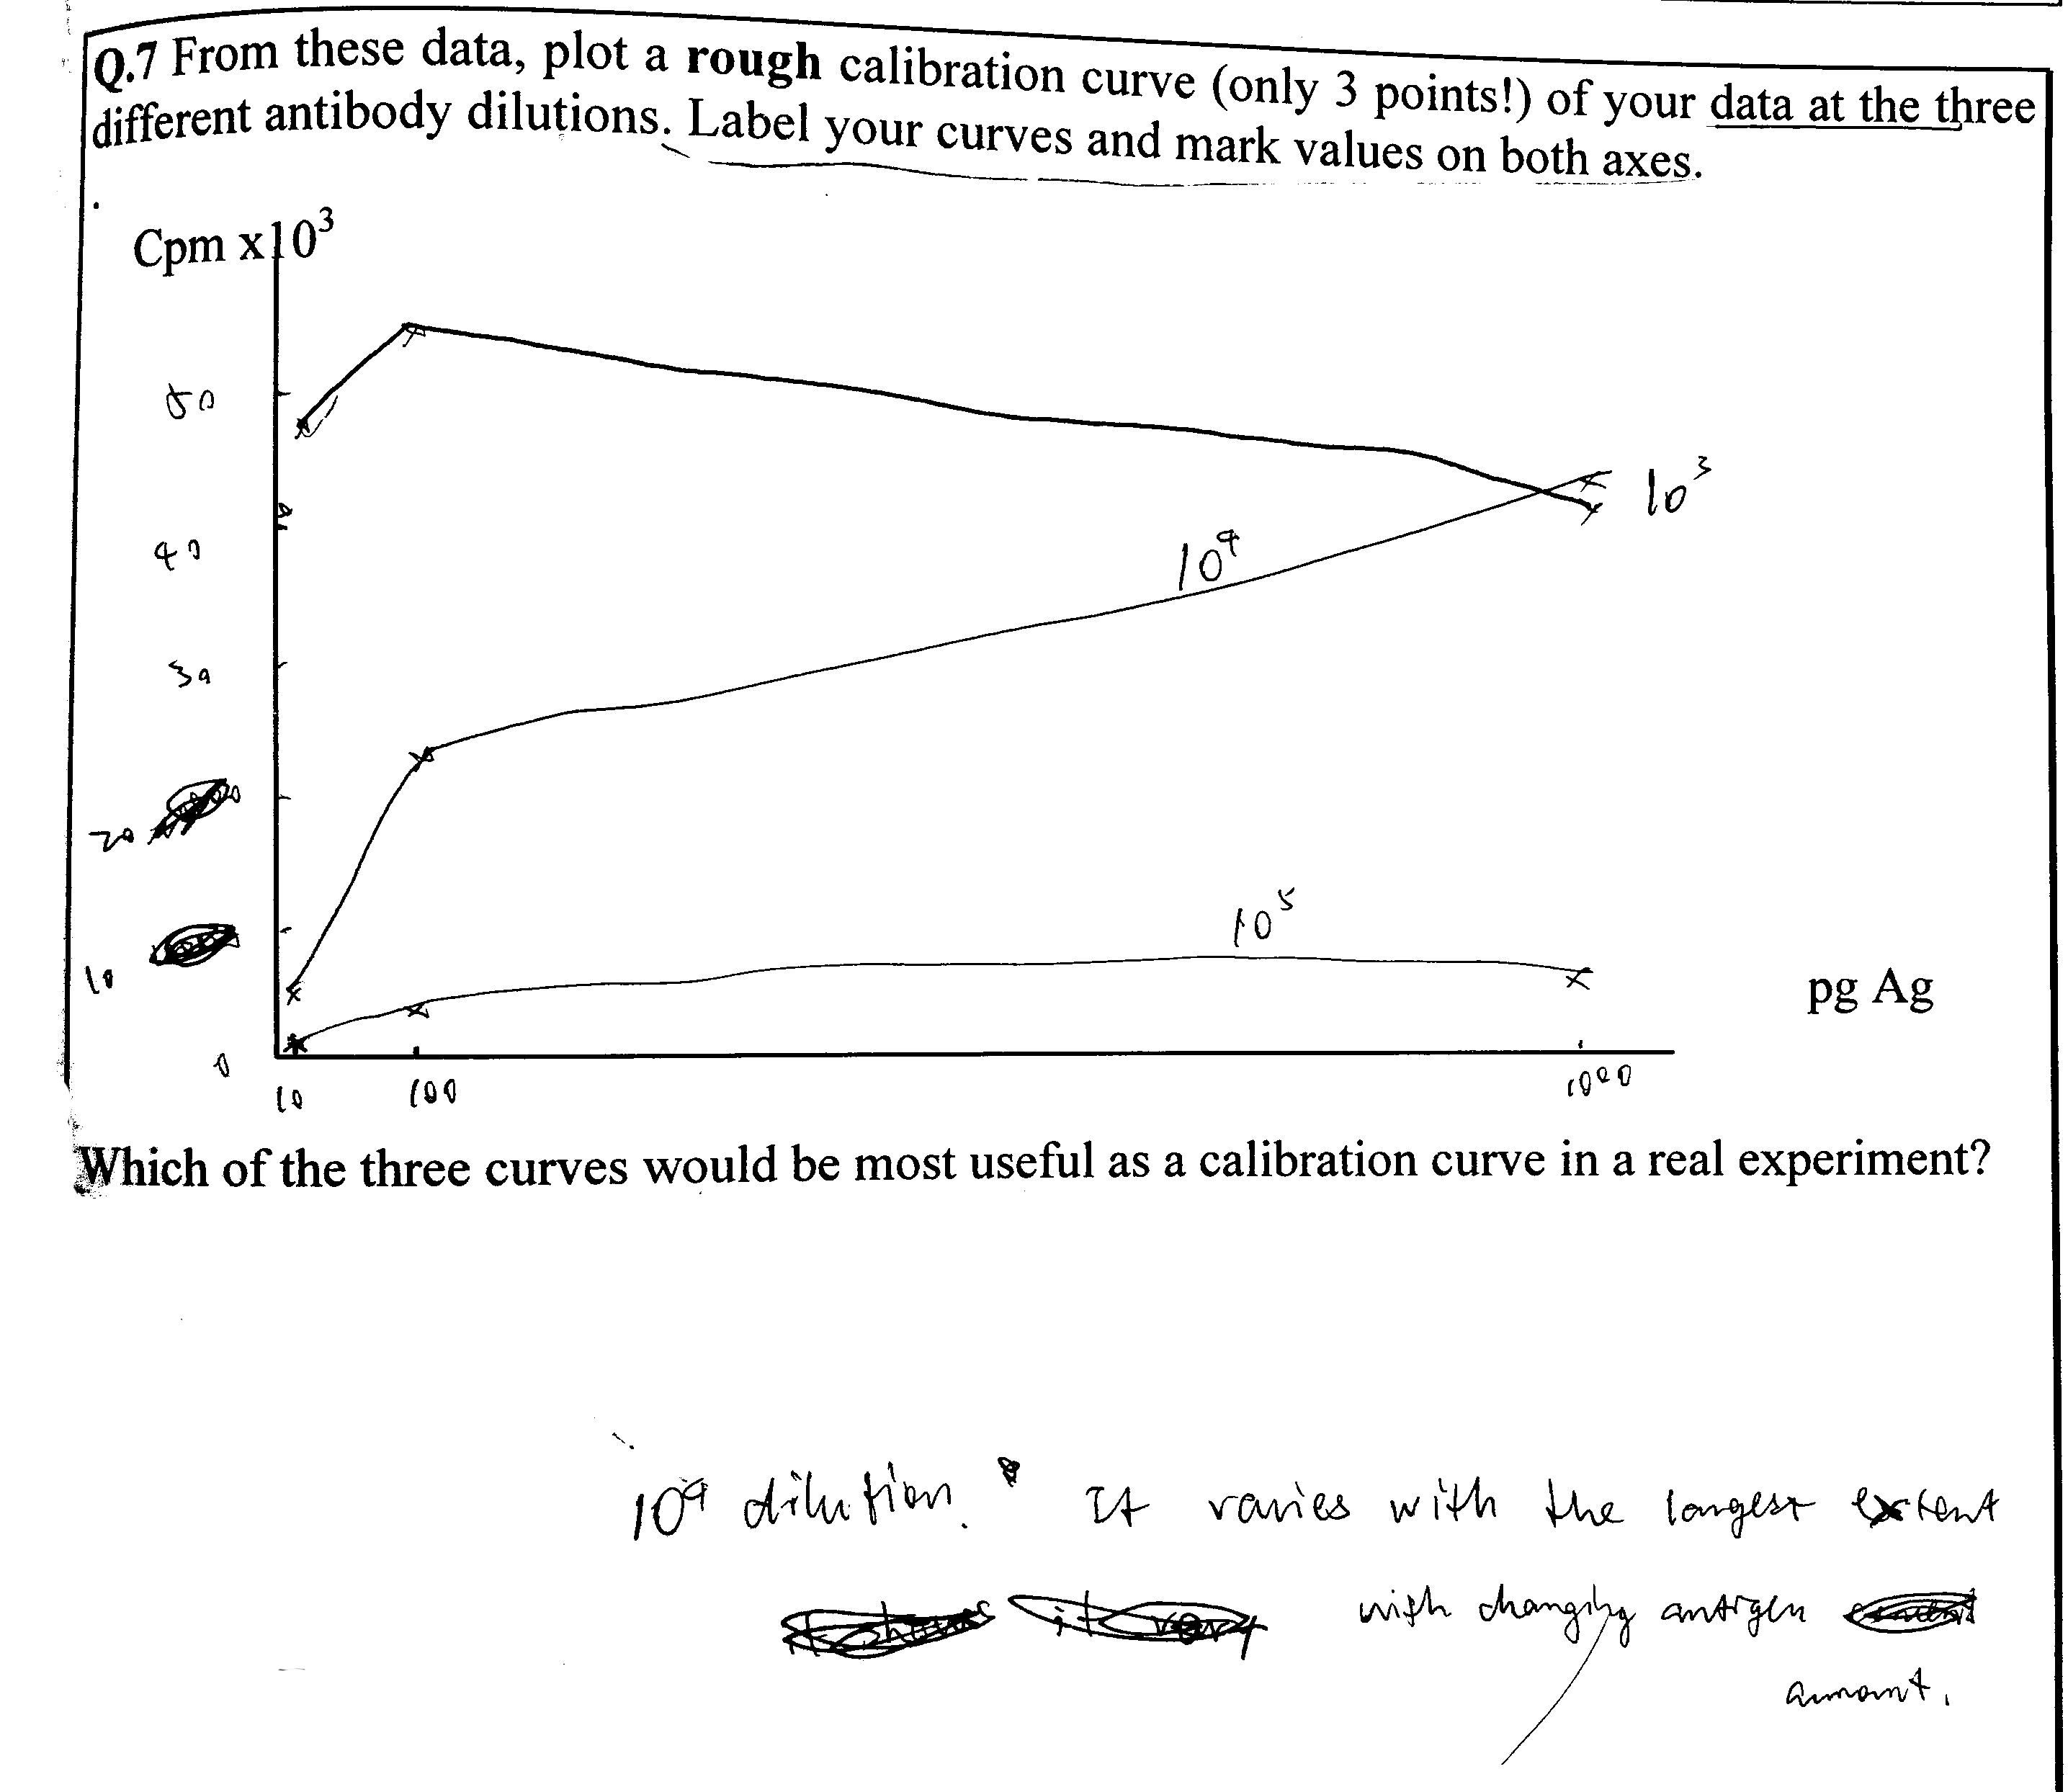 Q.7 From these data, plot a rough calibration curve (only 3 points!) of your data at the three
different antibody dilutions. Label your curves and mark values on both axes.
Cpm x10³
50
10³
40
10⁴
30
20
10⁵
10
pg Ag
0
10 100 1000
Which of the three curves would be most useful as a calibration curve in a real experiment?
10⁴ dilution. It varies with the largest extent
with changing antigen
amount.